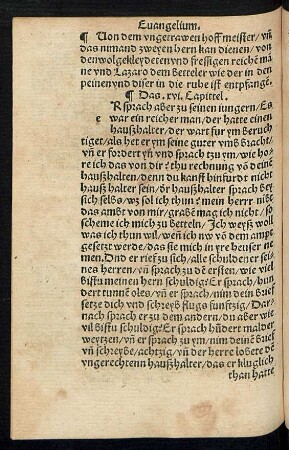 Euangelium.
¶ Von dem vngetrawen hoffmeister/ vn̄
das nimand zweyen hern kan dienen/ von
den wolgekleydeten vnd fressigen reichē mā
ne vnd Lazaro dem betteler wie der in den
peinen vnd diser in die ruhe ist entpfangē.
¶ Das .xvi. Capittel.
R sprach aber zu seinen iungern/ Es
e war ein reicher man/ der hatte einen
haußhalter/ der wart fur ym beruch
tiget/ als het er ym seine guter vmb bracht/
vn̄ er fordert yn̄ vnd sprach zu ym/ wie ho-
re ich das von dir? thu rechnung vō deinē
haußhalten/ denn du kanst hinfurdt nicht
haußhalter sein/ dr haußhalter sprach bey
sich selbs/ wz sol ich thun? mein herr nibt
das ambt von mir/ grabē mag ich nicht/ so
scheme ich mich zu betteln/ Ich weyß woll
was ich thun wil/ wen̄ ich nu vō dem ampt
gesetzt werde/ das sie mich in yre heuser ne
men. Vnd er rief zu sich/ alle schuldener sei-
nes herren/ vn̄ sprach zu dē ersten/ wie viel
bistu meinen hern schuldig? Er sprach/ hun
dert tunnē oles/ vn̄ er sprach/ nim dein brief
setze dich vnd schreyb flugs funftzig/ Dar-
nach sprach er zu dem andern/ du aber wie
vil bistu schuldig? Er sprach hūdert malder
weytzen/ vn̄ er sprach zu ym/ nim deinē brief
vn̄ schreybe/ achtzig/ vn̄ der herre lobete dē
vngerechtenn haußhalter/ das er kluglich
than hatte